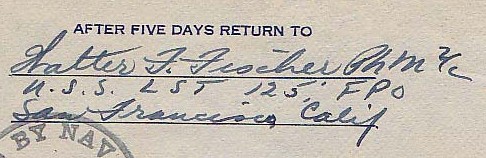 AFTER FIVE DAYS RETURN TO
Walter F. Fischer PhM 2/c
U.S.S. LST 125, FPO
San Francisco, Calif
BY NAV